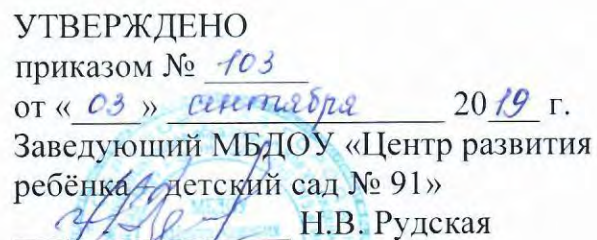 УТВЕРЖДЕНО
приказом № 103
от « 03 » сентября 2019 г.
Заведующий МБДОУ «Центр развития
ребёнка – детский сад № 91»
Н.В. Рудская